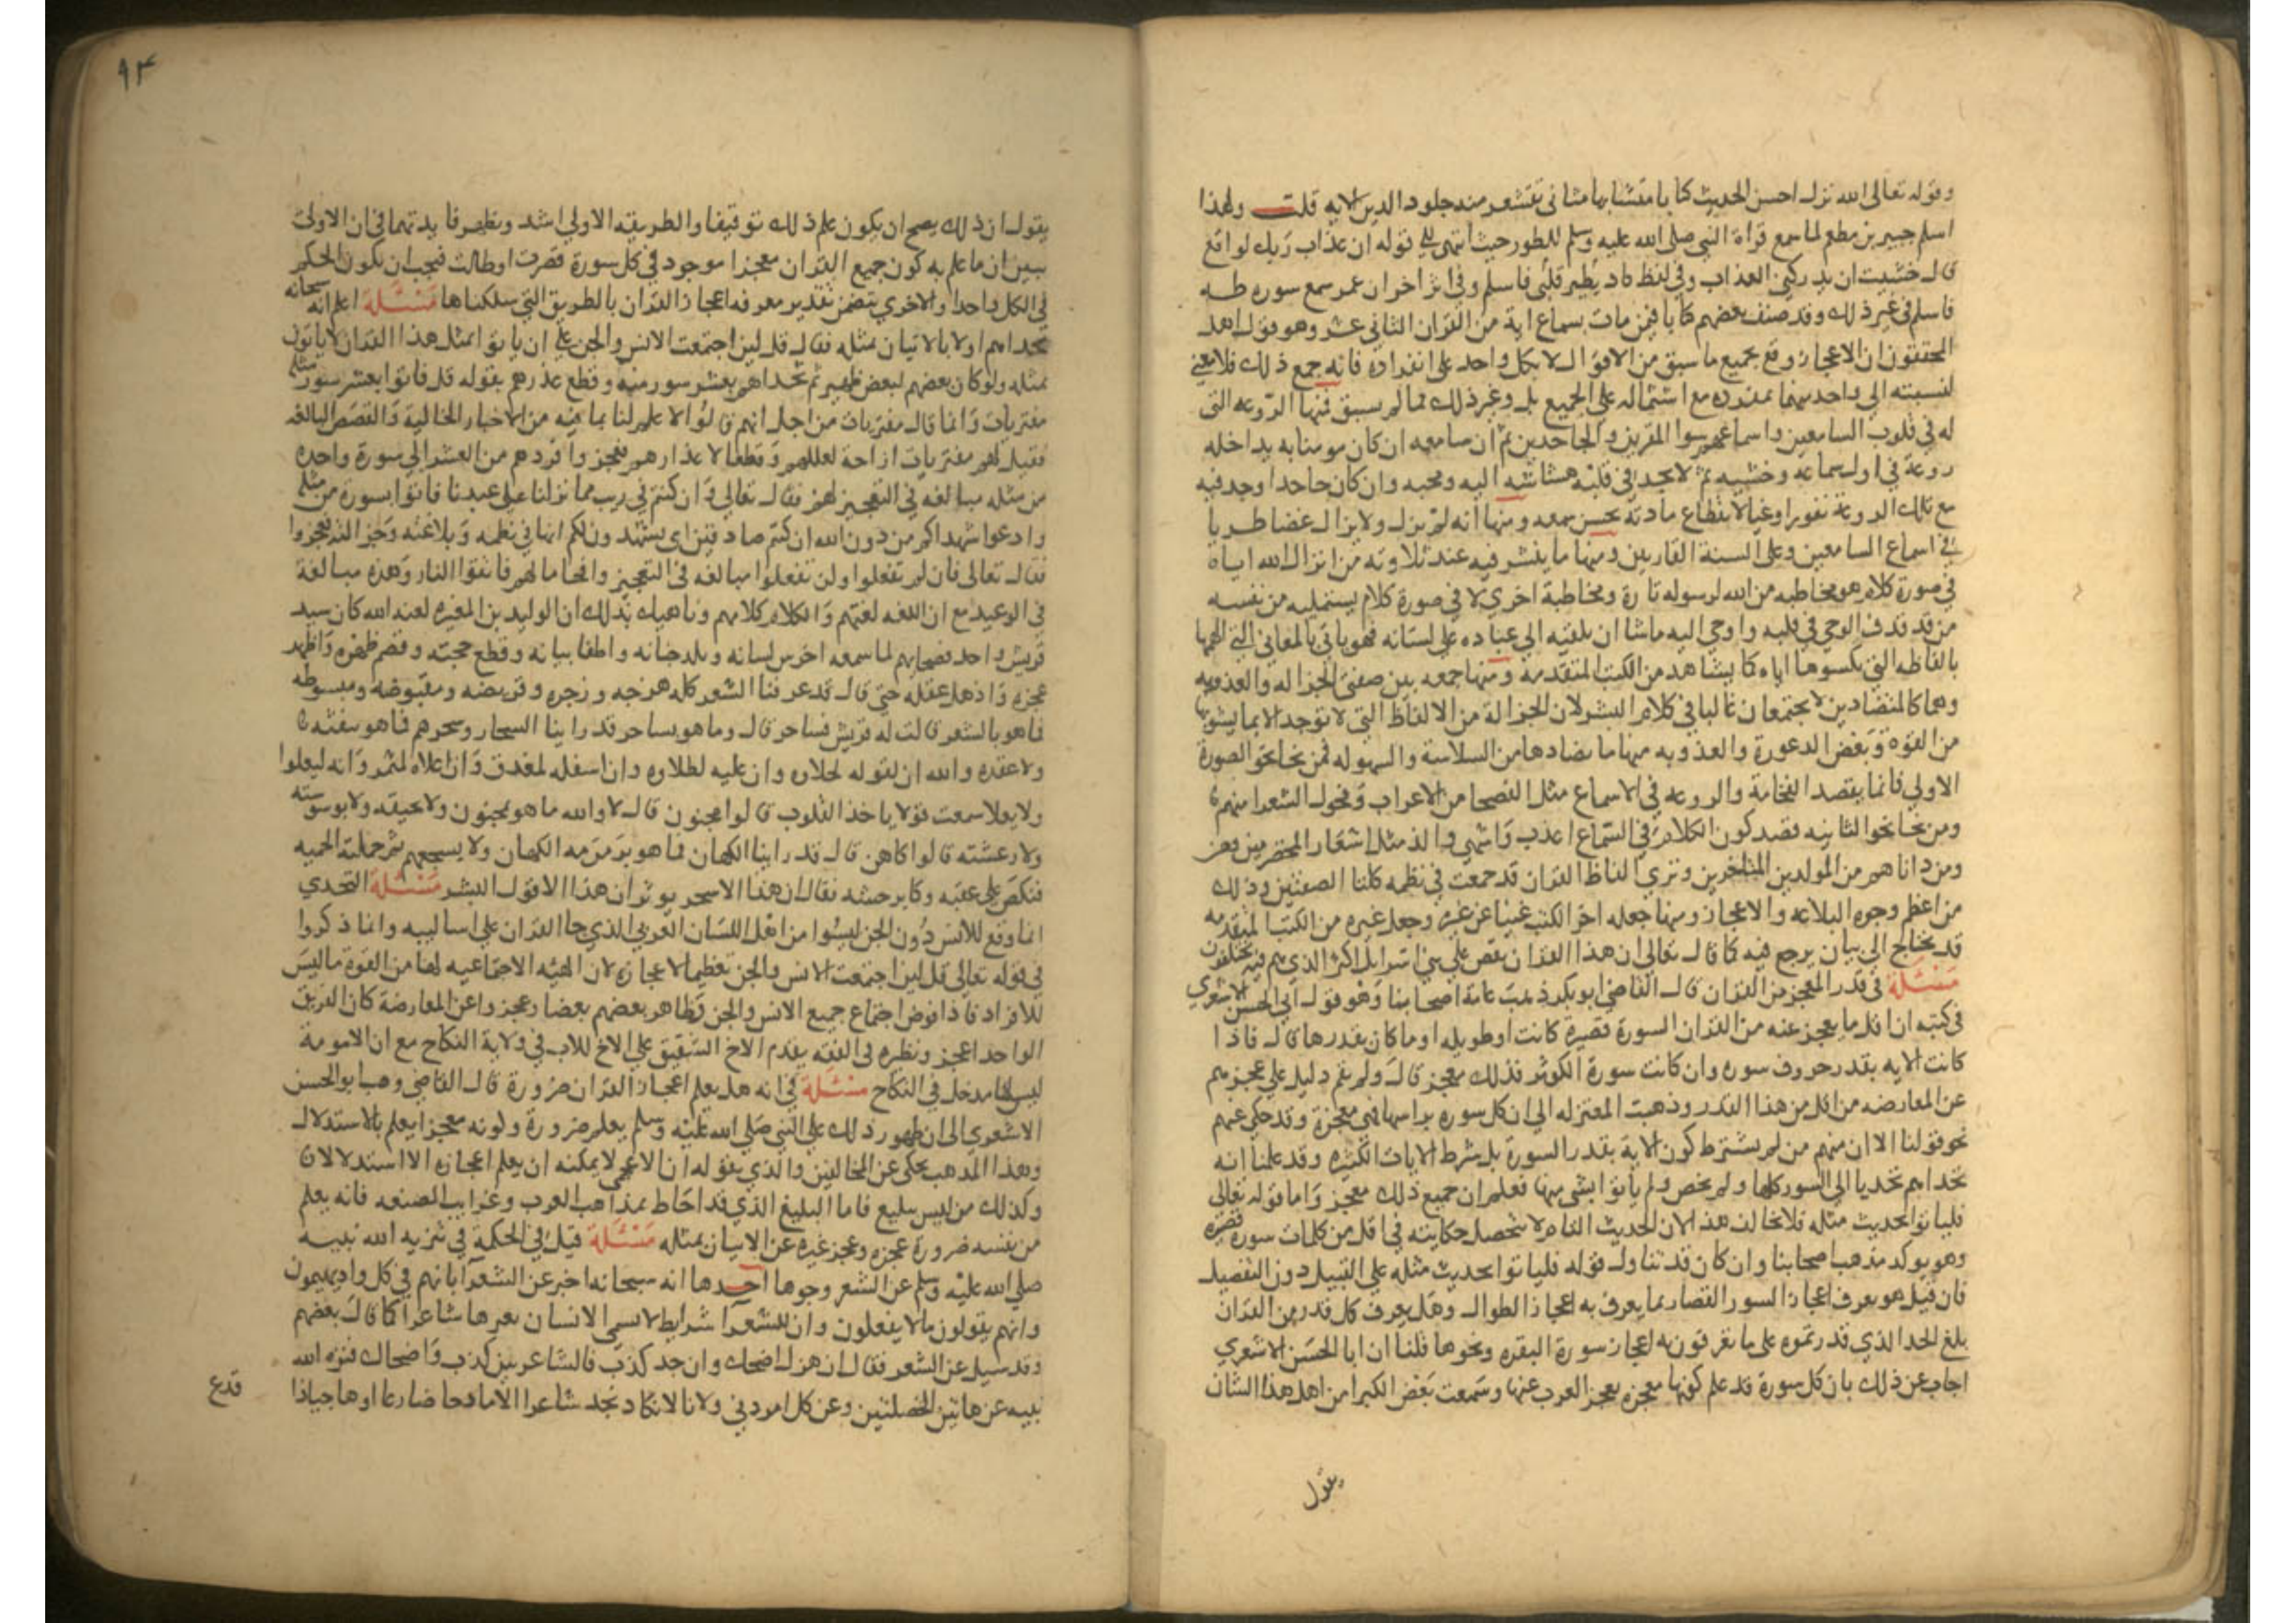 وقوله تعالى الله نزل احسن الحديث كتابا متشابها مثانى تقشعر منه جلود الدين الايه قلت ولهذا
اسلم جبير بن مطعم لما سمع قراة النبى صلى الله عليه وسلم للطور حيث انتهى الى قوله ان عذاب ربك لواقع
قال خشيت ان يدركنى العذاب وفى لفظ كاد يطير قلبى فاسلم وفى اثر اخر ان عمر سمع سوره طه
فاسلم فى غير ذلك وقد صنف بعضهم كتابا فيمن مات بسماع اية من القران الثانى عشر وهو قول اهل
المحققون ان الاعجاز وقع بجميع ما سبق من الاقوال لا بكل واحد على انفراده فانه جمع ذلك فلا معنى
لنسبته الى واحد منها بمفرده مع اشتماله على الجميع بل وغير ذلك مما لم يسبق فمنها الروعه التى
له فى قلوب السامعين واسماعهم سوا المقرين والجاحدين ثم ان سامعه ان كان مومنا به يداخله
روعة فى اول سماعه وخشيه ثم لا يجد فى قلبه هشاشه اليه ومحبه وان كان جاحدا وجد فيه
مع تلك الروعة نفورا وعيا لانقطاع مادته بحسن سمعه ومنها انه لم يزل ولا يزال غضا طريا
فى اسماع السامعين وعلى السنة القاريين ومنها ما ينشر فيه عند تلاوته من انزال الله اياه
فى صورة كلام هو مخاطبه من الله لرسوله تارة ومخاطبة اخرى لا فى صورة كلام يستمليه من نفسه
من قد قذف الوحى فى قلبه واوحى اليه ماشا ان يلقيه الى عباده على لسانه فهو ياتى بالمعانى التى الهمها
بالفاظه التى يكسوها اياه كما يشاهد من الكتب المتقدمة ومنها جمعه بين صفتى الجزاله والعذوبه
وهما كالمتضادين لا يجتمعان غالبا فى كلام البشر لان الجزالة من الالفاظ التى لا توجد الا بما يشوبها
من القوة وبعض الدعورة والعذوبه منها ما يضادها من السلاسة والسهوله فمن نحا نحو الصورة
الاولى فانما يقصد الفخامة والروعه فى الاسماع مثل الفصحا من الاعراب وفحول الشعرا منهم
ومن نحا نحو الثانيه قصد كون الكلام فى السماع اعذب واشهى والذ مثل اشعار المخضرمين
ومن داناهم من المولدين المتاخرين وترى الفاظ القران قد جمعت فى نظمه كلتا الصفتين وذلك
من اعظم وجوه البلاغه والاعجاز ومنها جعله اخر الكتب غنيا عن غيره وجعل غيره من الكتب المتقدمه
قد يحتاج الى بيان يرجع فيه كما قال تعالى ان هذا القران يقص على بنى اسرايل اكثر الذى هم فيه يختلفون
مسئلة فى قدر المعجز من القران قال القاضى ابو بكر ذهب عامة اصحابنا وهو قول ابى الحسن الاشعري
فى كتبه ان اقل ما يعجز عنه من القران السورة قصيرة كانت او طويله او ما كان بقدرها قال فاذا
كانت الايه بقدر حروف سوره وان كانت سورة الكوثر فذلك معجز قال ولم يقم دليل على عجزهم
عن المعارضه من اقل من هذا القدر وذهبت المعتزله الى ان كل سوره براسها فهى معجزة وقد حكى عنهم
نحو قولنا الا ان منهم من لم يشترط كون الاية بقدر السورة بل شرط الايات الكثيره وقد علمنا انه
تحداهم تحديا الى السور كلها ولم يخص ولم ياتوا بشى منها فعلم ان جميع ذلك معجز واما قوله تعالى
فلياتوا بحديث مثله فلا يخالف هذا لان الحديث التام لا تتحصل حكايته فى اقل من كلمات سورة قصيره
وهو يوكد مذهب اصحابنا وان كان قد تناول قوله فلياتوا بحديث مثله على القبيل دون التفصيل
فان قيل هو يعرف اعجاز السور القصار بما يعرف به اعجاز الطوال وهل يعرف كل قدر من القران
بلغ الحد الذى قدرتموه على ما تعرفون به اعجاز سورة البقره ونحوها قلنا ان ابا الحسن الاشعري
اجاب عن ذلك بان كل سورة قد علم كونها معجزه بعجز العرب عنها وسمعت بعض الكبرا من اهل هذا الشان
يقول
٩٣
يقول ان ذلك يصح ان يكون علم ذلك توقيفا والطريقه الاولى اشد وتظهر فايدتهما فى ان الاولى
تبين ان ما علم به كون جميع القران معجزا موجود فى كل سورة قصرت او طالت فيجب ان يكون الحكم
فى الكل واحدا والاخرى تتضمن تقدير معرفه اعجاز القران بالطريق التى سلكناها مسئلة اعلم انه سبحانه
تحداهم اولا بالاتيان بمثله فقال قل لين اجتمعت الانس والجن على ان ياتوا بمثل هذا القران لا ياتون
بمثله ولو كان بعضهم لبعض ظهير ثم تحداهم بعشر سور منه وقطع عذرهم بقوله قل فاتوا بعشر سور مثله
مفتريات وانما قال مفتريات من اجل انهم قالوا لا علم لنا بما فيه من الاخبار الخاليه والقصص البالغه
فقيل لهم مفتريات ازاحة لعللهم وقطعا لاعذارهم فعجز وافردهم من العشر الى سورة واحده
من مثله مبالغه فى التعجيز لهم فقال تعالى وان كنتم فى ريب مما نزلنا على عبدنا فاتوا بسورة من مثله
وادعوا شهداكم من دون الله ان كنتم صادقين اى يشهدون لكم انها فى نظمه وبلاغته وجزالته فعجزوا
فقال تعالى فان لم تفعلوا ولن تفعلوا مبالغه فى التعجيز وافحاما لهم فاتقوا النار وهذه مبالغة
فى الوعيد مع ان اللغه لغتهم والكلام كلامهم وناهيك بذلك ان الوليد بن المغيره لعنه الله كان سيد
قريش واحد فصحايهم لما سمعه اخرس لسانه وبلد جنانه واطفا بيانه وقطع حجته وقصم ظهره واظهر
عجزه واذهل عقله حتى قال قد عرفنا الشعر كله هزجه ورجزه وقريضه ومقبوضه ومبسوطه
فما هو بالشعر قالت له قريش فساحر قال وما هو بساحر قد راينا السحار وسحرهم فما هو بنفثه
ولا عقده والله ان لقوله لحلاوه وان عليه لطلاوه وان اسفله لمغدق وان اعلاه لمثمر وانه ليعلوا
ولا يعلا سمعت قولا ياخذ القلوب قالوا مجنون قال لا والله ما هو بمجنون ولا بخنقه ولا بوسوسته
ولا رعشته قالوا كاهن قال قد راينا الكهان فما هو بزمزمه الكهان ولا بسجعهم ثم حملته الحميه
فنكص على عقبه وكابر حسه فقال ان هذا الا سحر يوثر ان هذا الا قول البشر مسئلة التحدي
انما وقع للانس دون الجن ليسوا من اهل اللسان العربى الذي جا القران على اساليبه وانما ذكروا
فى قوله تعالى قل لين اجتمعت الانس والجن تعظيما لاعجازه لان الهيه الاجتماعيه لها من القوة ما ليس
للافراد فاذا فرض اجتماع جميع الانس والجن وظاهر بعضهم بعضا وعجزوا عن المعارضة كان الفريق
الواحد اعجز ونظيره فى الفقه يقدم الاخ الشقيق على الاخ للاب فى ولاية النكاح مع ان الامومة
ليس لها مدخل فى النكاح مسئلة فى انه هل يعلم اعجاز القران ضرورة قال القاضى وهب ابو الحسن
الاشعري الى ان ظهور ذلك على النبى صلى الله عليه وسلم يعلم ضرورة ولونه معجزا يعلم بالاستدلال
وهذا المذهب يحكى عن المخالفين والذي يقوله ان الاعجمى لا يمكنه ان يعلم اعجازه الا استدلالا
وكذلك من ليس ببليغ فاما البليغ الذي قد احاط بمذاهب العرب وغرايب الصنعه فانه يعلم
من نفسه ضرورة عجزه وعجز غيره عن الاتيان بمثله مسئلة قيل فى الحكمة فى تنزيه الله نبيه
صلى الله عليه وسلم عن الشعر وجوها احدها انه سبحانه اخبر عن الشعرآ بانهم فى كل واد يهيمون
وانهم يقولون ما لا يفعلون وان للشعرآ شرايط لا يسمى الانسان بغيرها شاعرا كما قال بعضهم
وقد سيل عن الشعر فقال ان هزل اضحك وان جد كذب فالشاعر بين كذب واضحاك فنزه الله
نبيه عن هاتين الخصلتين وعن كل امر دنى ولانا لا نكاد نجد شاعرا الا مادحا ضارعا او هاجيا ذا
قدع